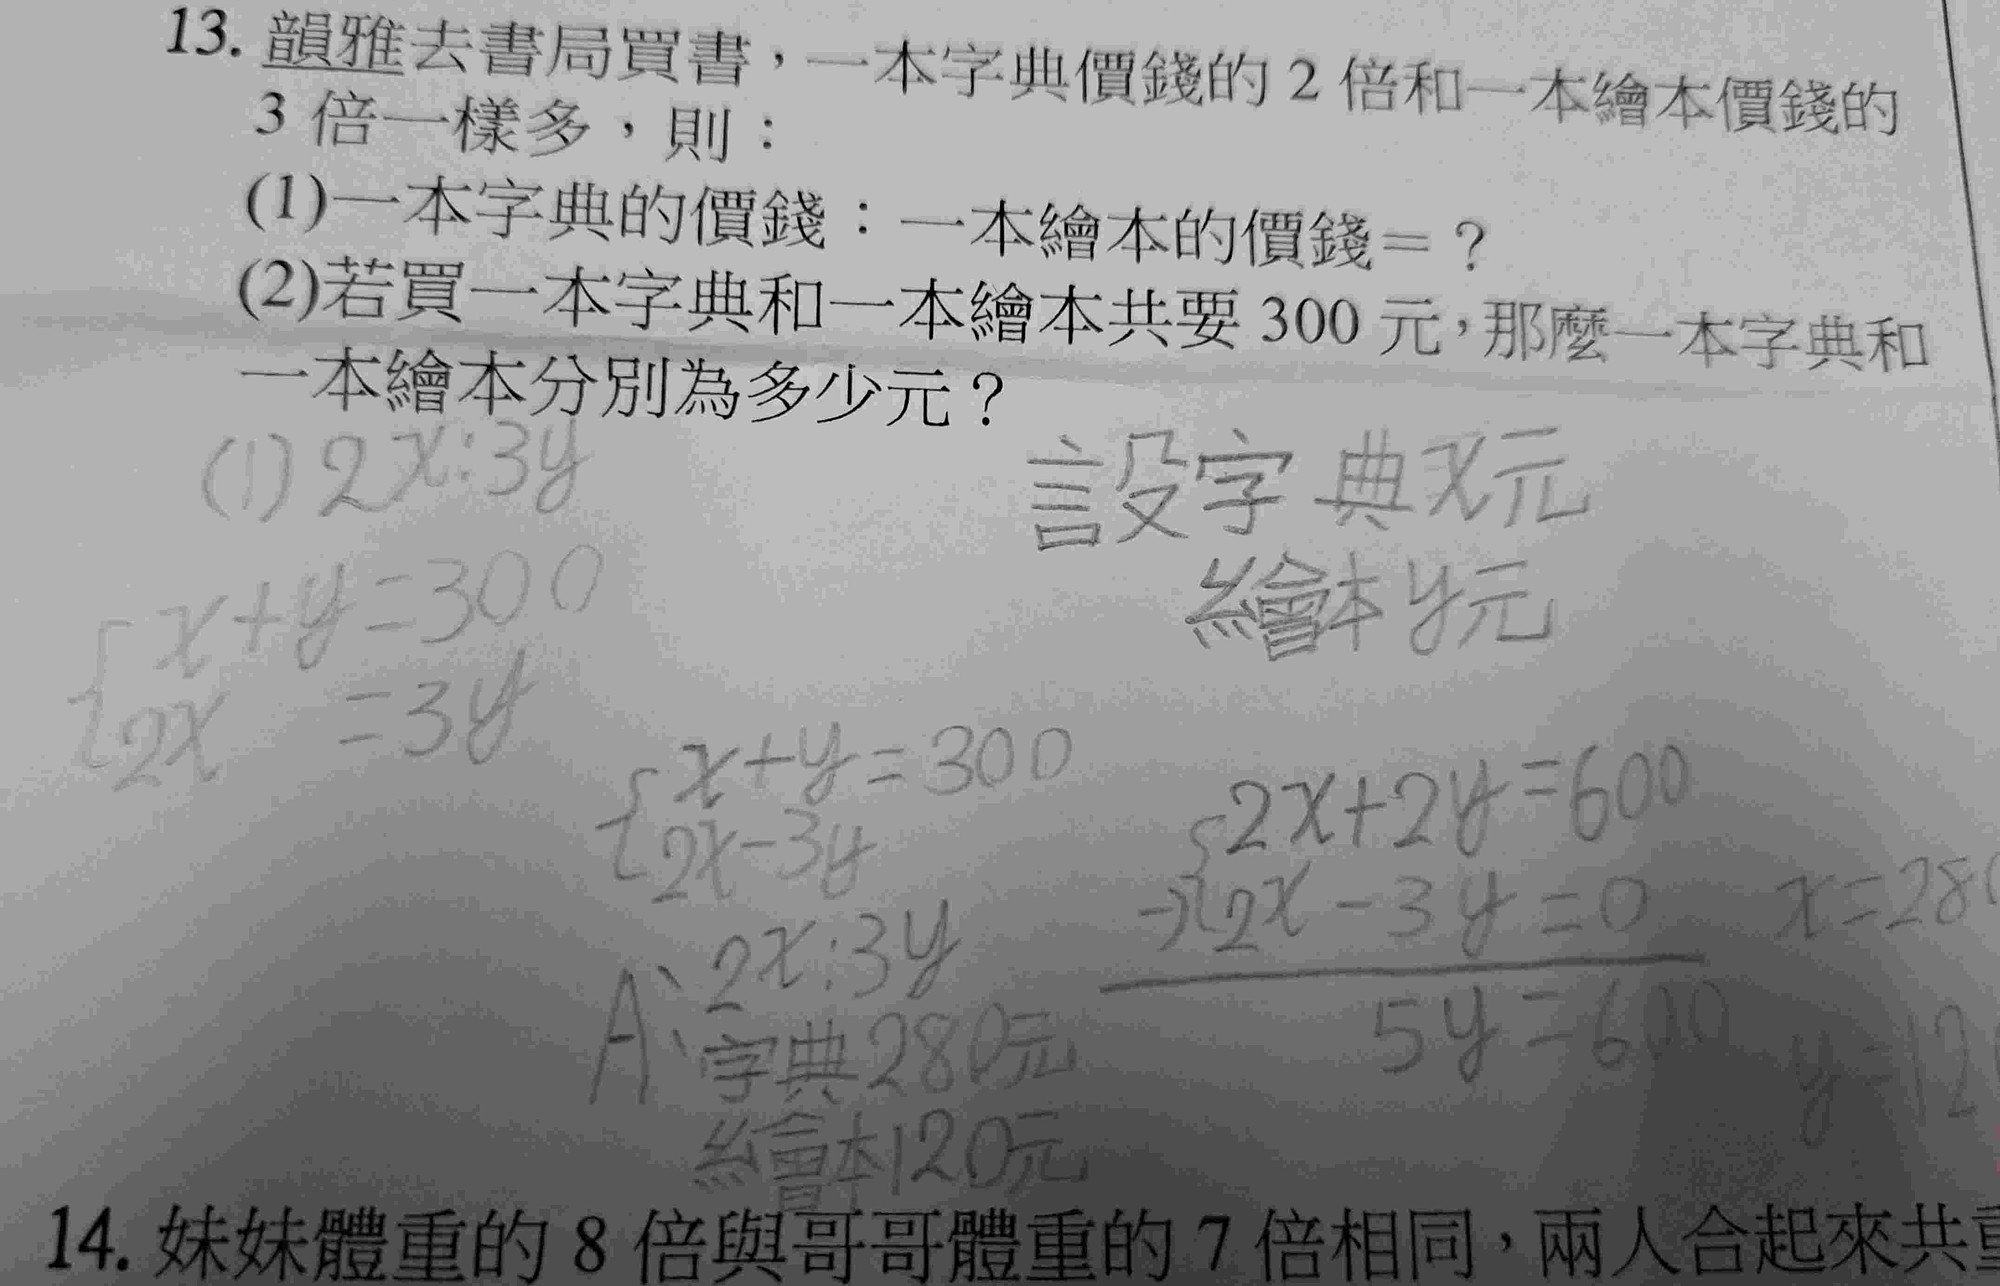 13. 韻雅去書局買書，一本字典價錢的 2 倍和一本繪本價錢的
3 倍一樣多，則：
(1)一本字典的價錢：一本繪本的價錢＝？
(2)若買一本字典和一本繪本共要 300 元，那麼一本字典和
一本繪本分別為多少元？
(1) 2x:3y
設字典x元
繪本y元
x+y=300
2x =3y
x+y=300
2x-3y
2x+2y=600
-) 2x-3y=0
5y=600
x=280
y=12
A、2x:3y
字典280元
繪本120元
14. 妹妹體重的 8 倍與哥哥體重的 7 倍相同，兩人合起來共重